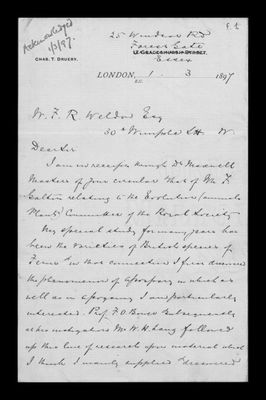 Acknowledged
1/3/97.
25 Windsor Rd
Forest Gate
Essex
CHAS. T. DRUERY.
LONDON, 1. 3 1897
W. F. R. Weldon Esq
30A Wimpole St W
Dear Sir
I am in receipt through Dr Maxwell
Masters of your circular & that of Mr F.
Galton relating to the Evolution (animals
Plants) Committee of the Royal Society
My special study for many years has
been the varieties of British species of
Ferns & in that connection I first discovered
the phenomenon of Apospory in which as
well as in Apogamy I am particularly
interested. Prof. F. O. Bower subsequently
at his instigation Mr W. H. Lang followed
up this line of research upon material which
I think I mainly supplied & discovered